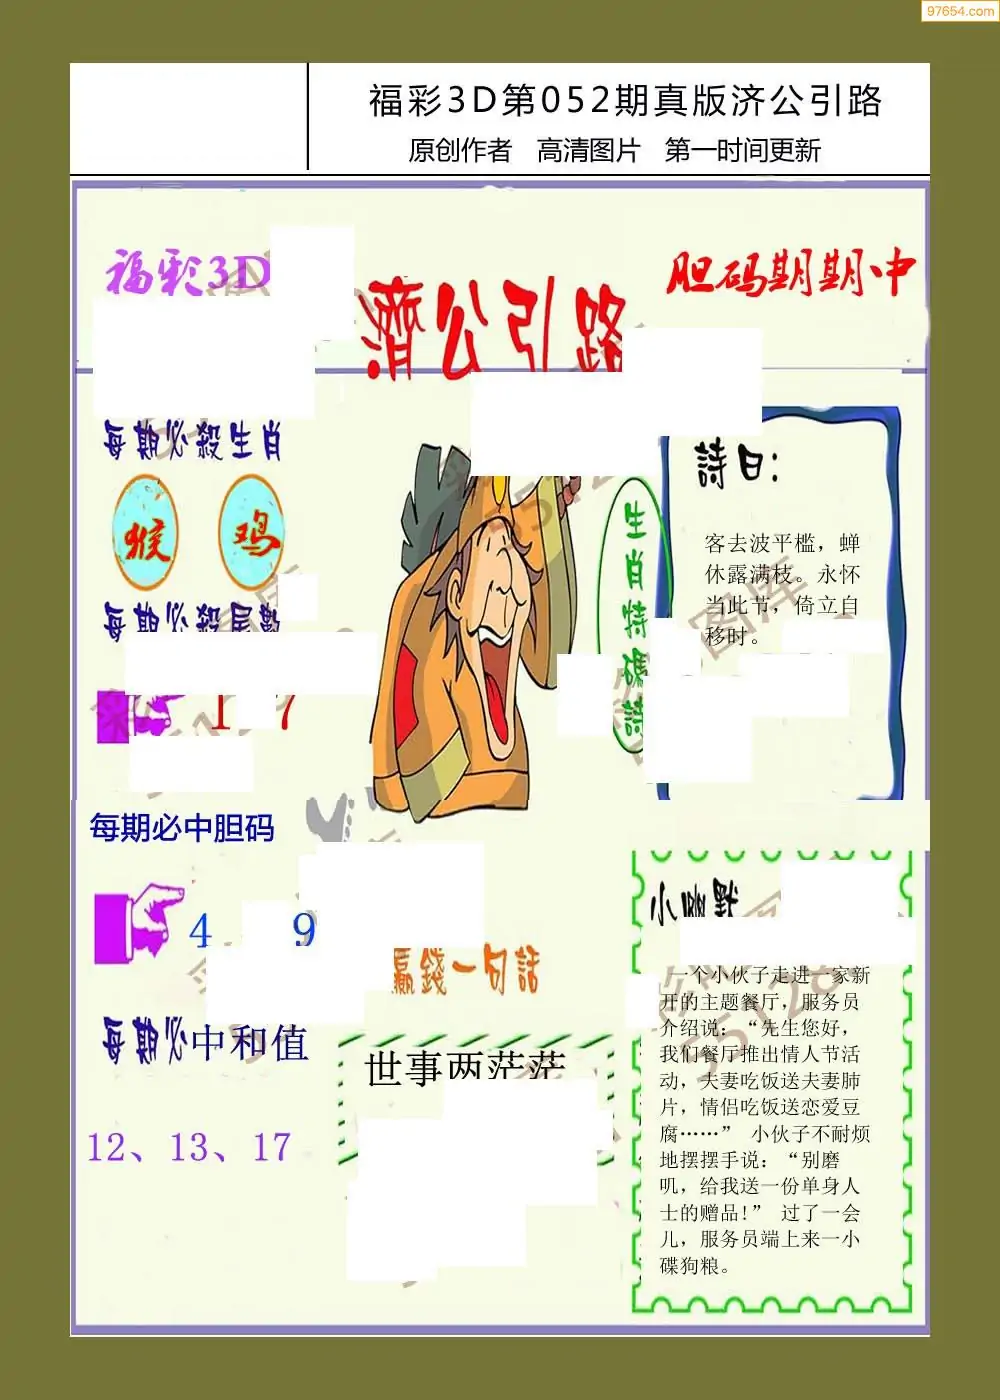 97654.com
福彩3D第052期真版济公引路
原创作者 高清图片 第一时间更新
福彩3D
濟公引路
胆码期期中
每期必殺生肖
猴 鸡
每期必殺尾數
1 7
每期必中胆码
4 9
每期必中和值
12、13、17
生肖特碼詩
詩曰:
客去波平槛，蝉
休露满枝。永怀
当此节，倚立自
移时。
赢錢一句話
世事两茫茫
小幽默
一个小伙子走进一家新
开的主题餐厅，服务员
介绍说：“先生您好，
我们餐厅推出情人节活
动，夫妻吃饭送夫妻肺
片，情侣吃饭送恋爱豆
腐……” 小伙子不耐烦
地摆摆手说：“别磨
叽，给我送一份单身人
士的赠品!” 过了一会
儿，服务员端上来一小
碟狗粮。